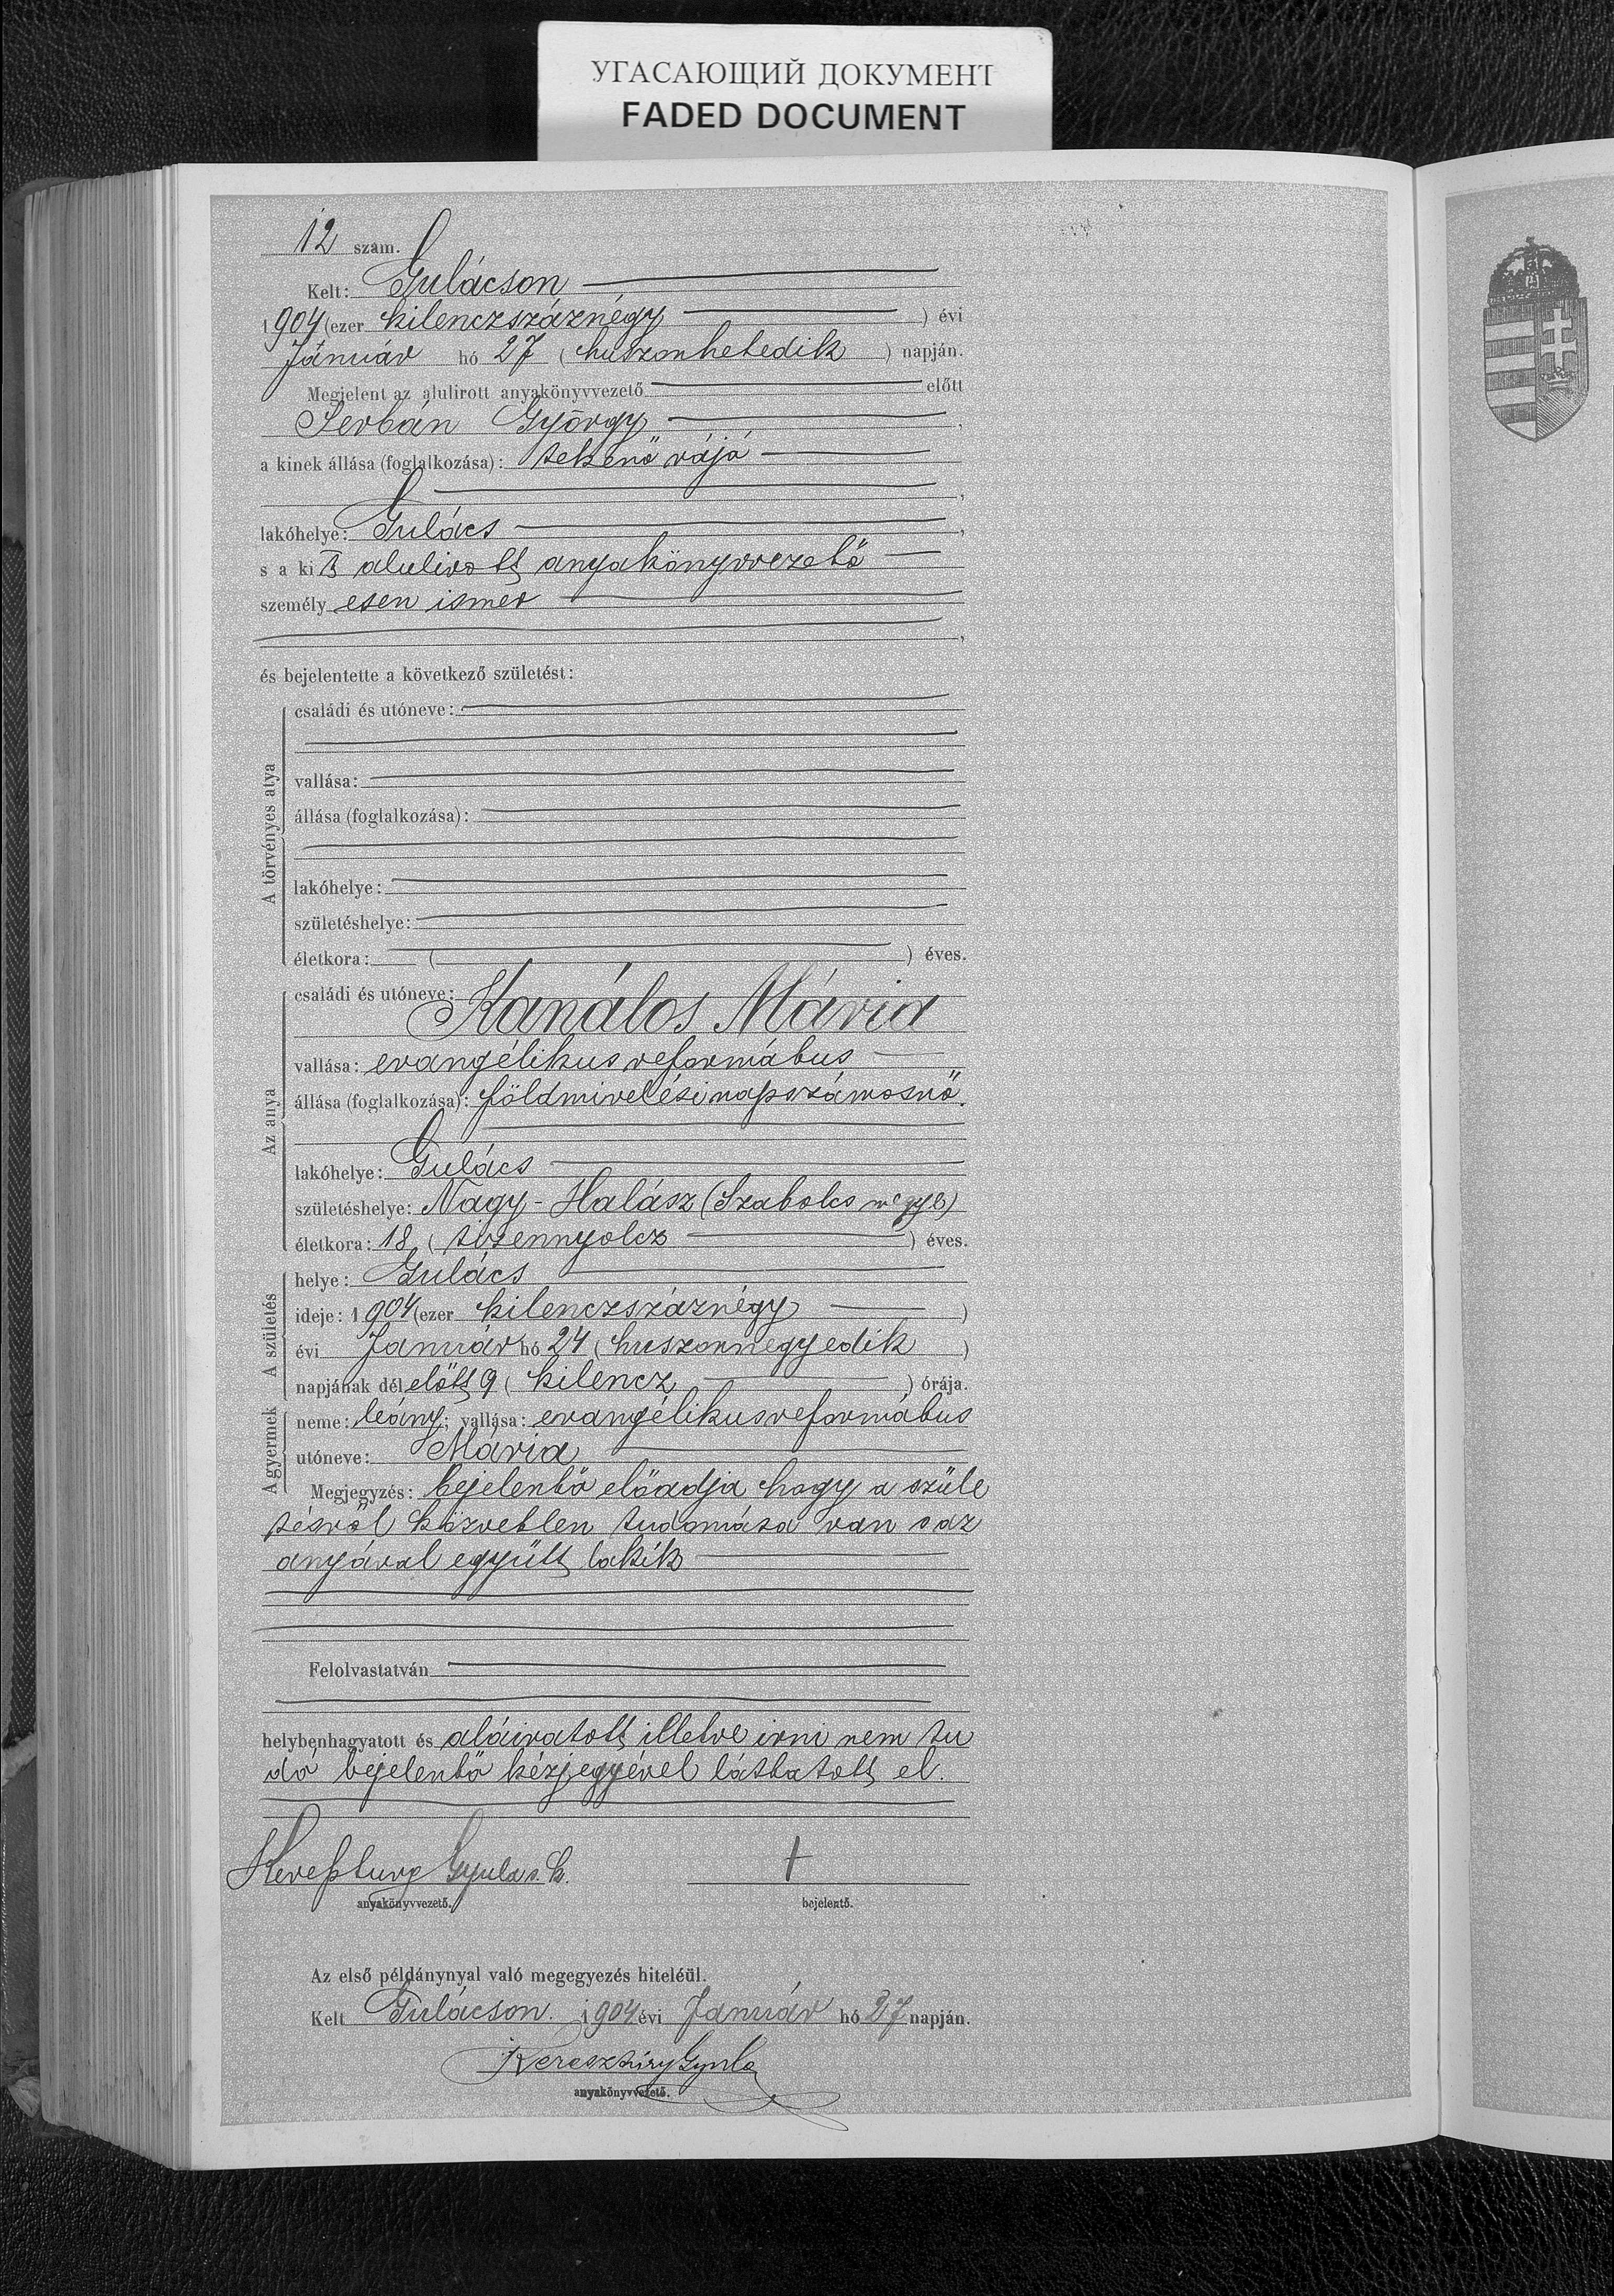 УГАСАЮЩИЙ ДОКУМЕНТ
FADED DOCUMENT
12 szám.
Kelt: Gulácson
1904 (ezer kilenczszáznégy ) évi
Január hó 27 (huszonhetedik ) napján.
Megjelent az alulirott anyakönyvvezető előtt
Serbán György ,
a kinek állása (foglalkozása): tekenő vájó
,
lakóhelye: Gulács ,
s a kit alulirott anyakönyvvezető
személy esen ismer
,
és bejelentette a következő születést:
A törvényes atya
családi és utóneve:
vallása:
állása (foglalkozása):
lakóhelye:
születéshelye:
életkora: ( ) éves.
Az anya
családi és utóneve:
Kanálos Mária
vallása: evangélikus református
állása (foglalkozása): földmivelési napszámosnő.
lakóhelye: Gulács
születéshelye: Nagy-Halász (Szabolcs megye)
életkora: 18 (tizennyolcz ) éves.
A születés
helye: Gulács
ideje: 1904 (ezer kilenczszáznégy )
évi Január hó 24 (huszonnegyedik )
napjának dél előtt 9 (kilencz ) órája.
A gyermek
neme: leány; vallása: evangélikus református
utóneve: Mária
Megjegyzés: bejelentő előadja hogy a szüle
tésről közvetlen tudomása van s az
anyával együtt lakik
Felolvastatván
helybenhagyatott és aláiratott illetve irni nem tu
dó bejelentő kézjegyével láttatott el.
Keresztury Gyula s. k. +
anyakönyvvezető. bejelentő.
Az első példánynyal való megegyezés hiteléül.
Kelt Gulácson. 1904 évi Január hó 27 napján.
Keresztúry Gyula
anyakönyvvezető.